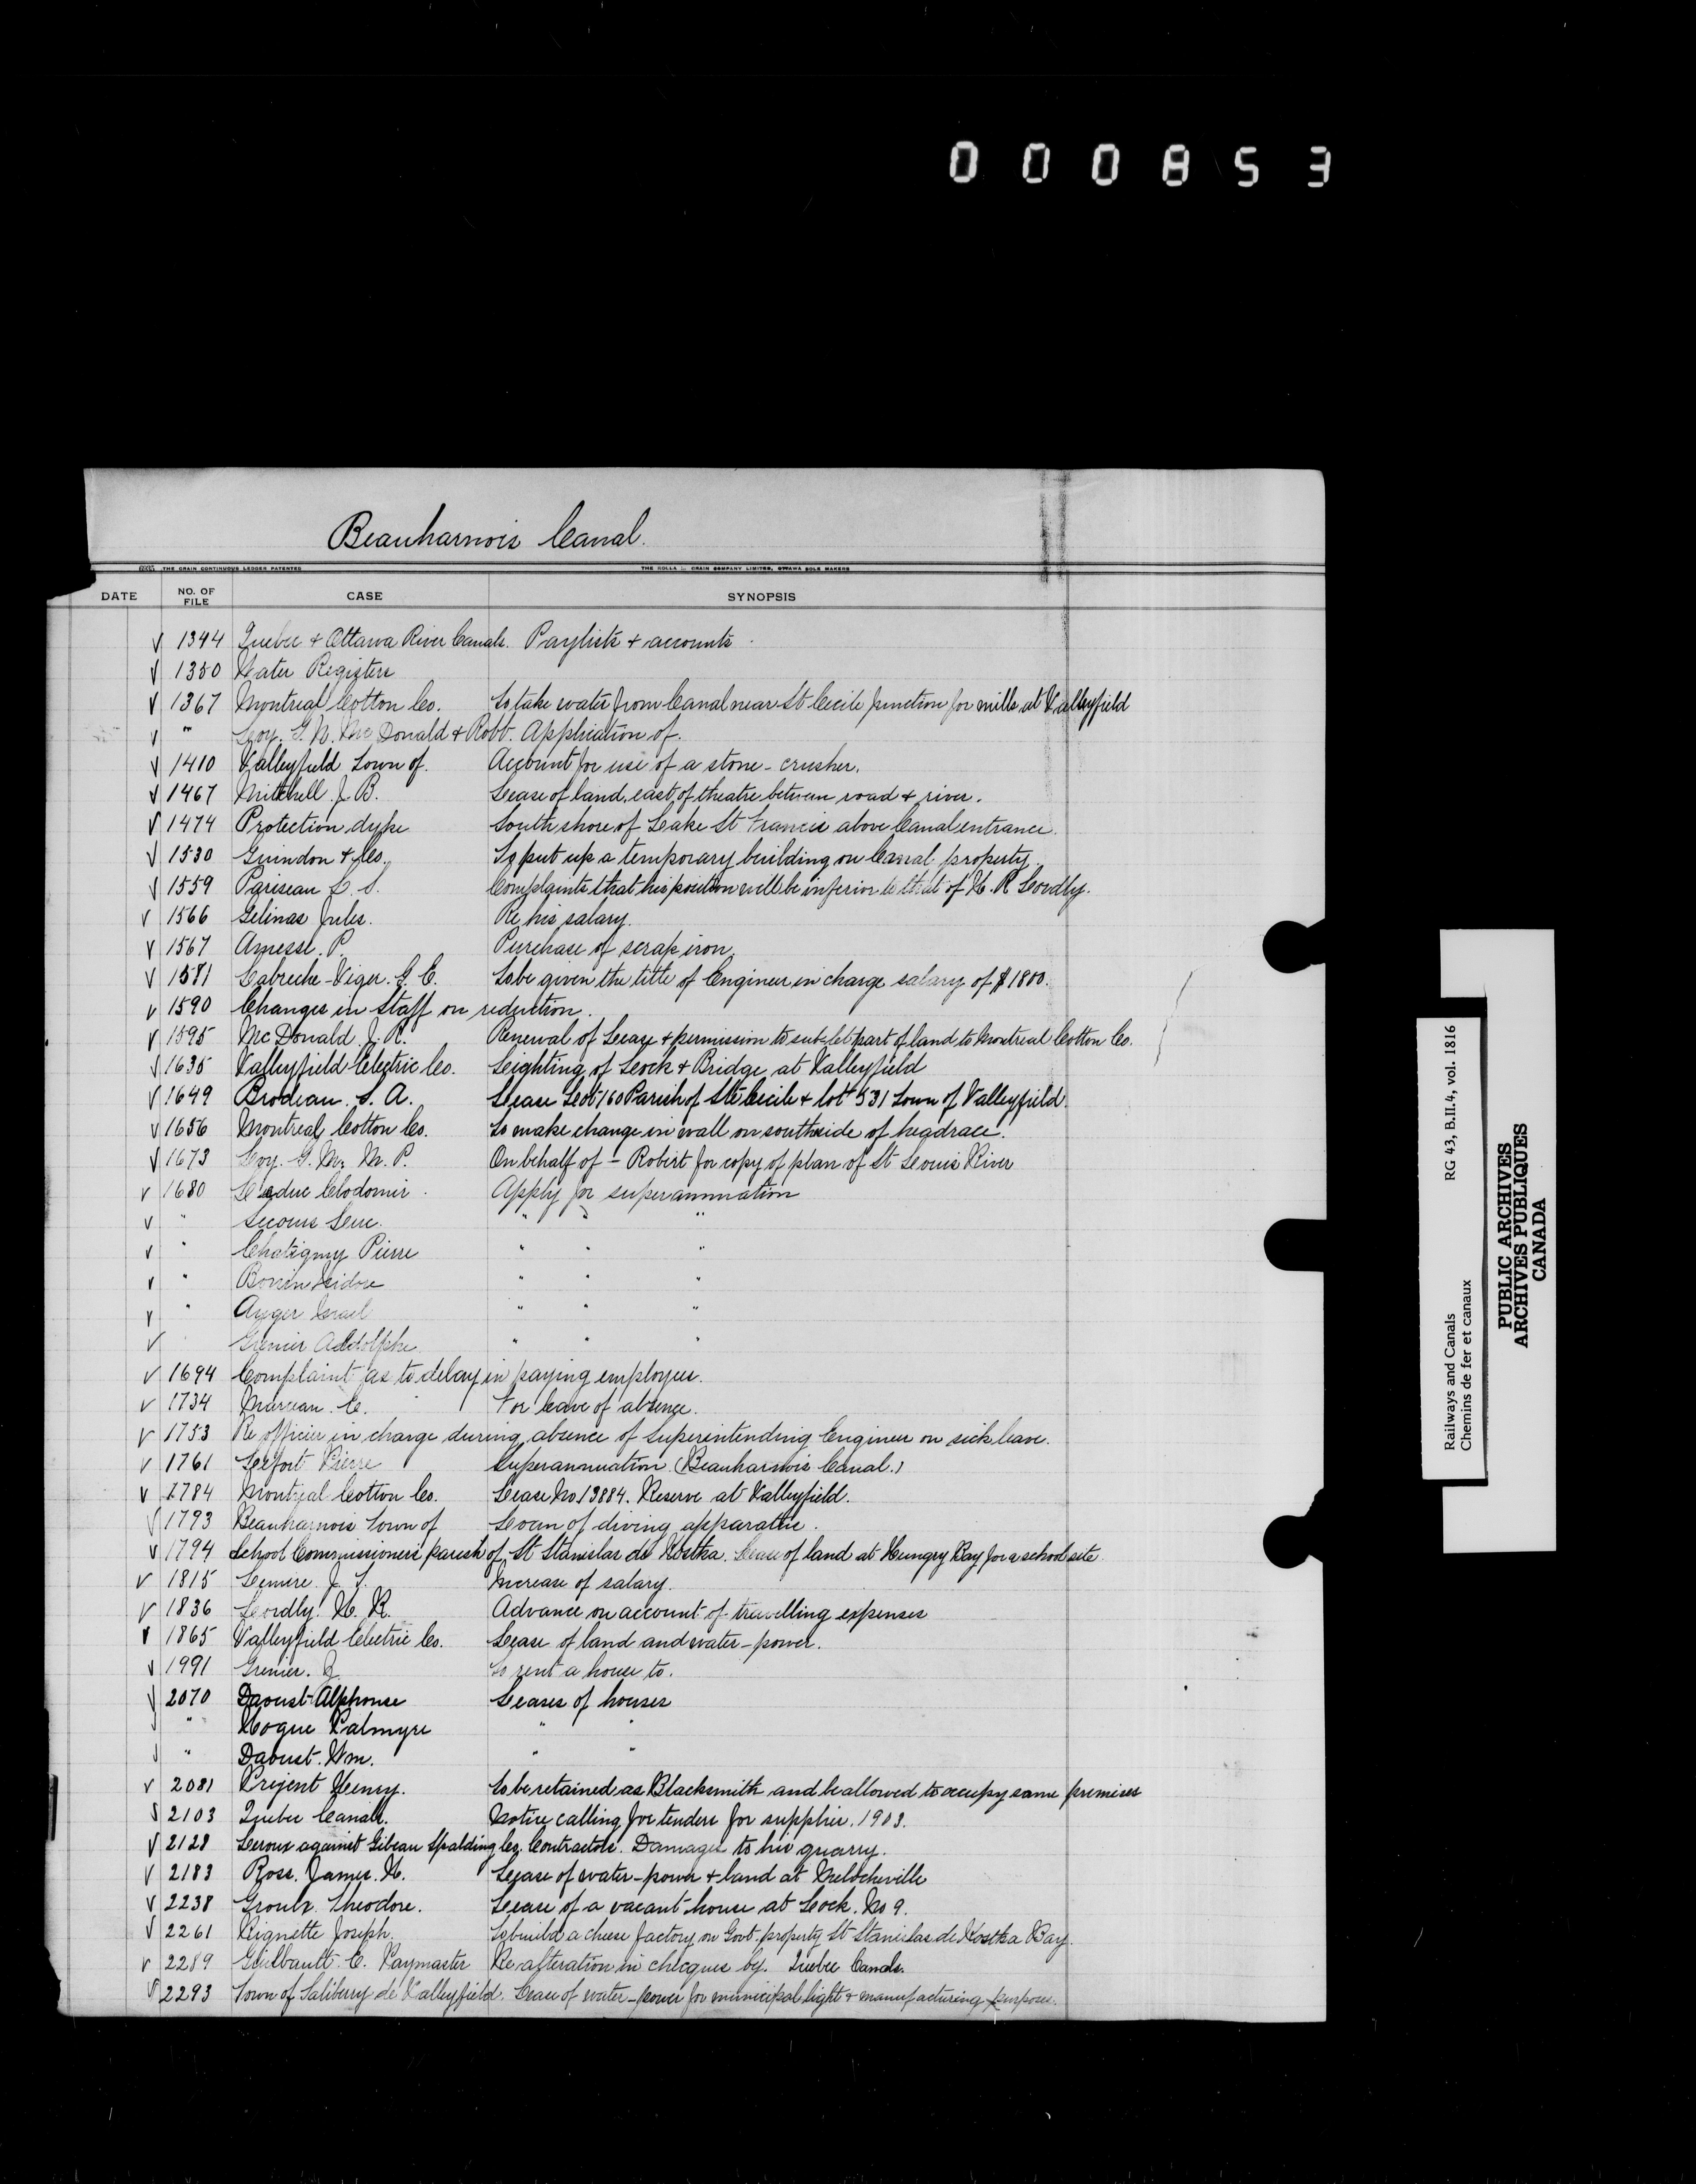 000853
Beauharnois Canal.
THE CRAIN CONTINUOUS LEDGER PATENTED
CRAIN COMPANY LIMITED, OTTAWA SOLE MAKERS
DATE NO. OF FILE CASE SYNOPSIS
√ 1344 Quebec & Ottawa River Canals. Paylists & accounts
√ 1350 Water Registers
√ 1367 Montreal Cotton Co. To take water from Canal near St Cecile junction for mills at Valleyfield
√ " Loy. G. N. McDonald & Robb. Application of.
√ 1410 Valleyfield Town of. Account for use of a stone-crusher.
√ 1467 Mitchell. J. B. Lease of land, east of theatre between road & river.
√ 1474 Protection dyke South shore of Lake St Francis above Canal entrance.
√ 1530 Guindon & Co. To put up a temporary building on Canal property.
√ 1559 Pariseau L. S. Complaints that his position will be inferior to that of H. R Cordly.
√ 1566 Gelinas Jules. Re his salary.
√ 1567 Amesse. P. Purchase of scrap iron.
√ 1581 Labreche-Viger. G. E. To be given the title of Engineer in charge salary of $1800.
√ 1590 Changes in Staff on reduction.
√ 1595 McDonald. J. R. Renewal of Lease & permission to sub-let part of land to Montreal Cotton Co.
√ 1635 Valleyfield Electric Co. Lighting of Lock & Bridge at Valleyfield
√ 1649 Brodeau. S. A. Lease Lot 160 Parish of Ste Cecile & lot 531 Town of Valleyfield.
√ 1656 Montreal Cotton Co. To make change in wall on southside of headrace.
√ 1673 Loy. G. M. M. P. On behalf of - Robert for copy of plan of St Louis River
√ 1680 Leduc Clodomir. Apply for superannuation
√ " " " "
√ " Chatigny Pierre " " "
√ " Bonin Isidore " " "
√ " Auger Israel " " "
√ Grenier Addolphe " " "
√ 1694 Complaint as to delay in paying employees.
√ 1734 Marceau. E. For leave of absence.
√ 1753 Re officer in charge during absence of Superintending Engineer on sick leave.
√ 1761 Lefort Pierre Superannuation (Beauharnois Canal.)
√ 1784 Montreal Cotton Co. Lease No 13884. Reserve at Valleyfield.
√ 1793 Beauharnois Town of Loan of diving apparatus.
√ 1794 School Commissioners parish of St Stanislas de Kostka. Lease of land at Hungry Bay for a school site
√ 1815 Lemire. J. Increase of salary.
√ 1836 Cordly. H. R. Advance on account of travelling expenses
√ 1865 Valleyfield Electric Co. Lease of land and water-power.
√ 1991 Grenier. To rent a house to.
√ 2070 Daoust Alphonse Leases of houses
√ " Hogue Palmyre " "
√ " Daoust. Wm. " "
√ 2081 Prejent Henry. To be retained as Blacksmith and be allowed to occupy same premises
√ 2103 Quebec Canals. Notice calling for tenders for supplies. 1903.
√ 2128 Leroux against Gibeau Spalding Co. Contractors. Damages to his quarry.
√ 2183 Ross. James. H. Lease of water-power & land at Melocheville
√ 2238 Groulx. Theodore. Lease of a vacant house at Lock. No 9.
√ 2261 Pignette Joseph. To build a cheese factory on Govt. property St Stanislas de Kostka Bay.
√ 2289 Guilbault. E. Paymaster Re alteration in cheques by. Quebec Canals.
√ 2293 Town of Saliberry de Valleyfield. Lease of water-power for municipal light & manufacturing purposes.
Railways and Canals RG 43, B.II.4, vol. 1816
Chemins de fer et canaux
PUBLIC ARCHIVES
ARCHIVES PUBLIQUES
CANADA